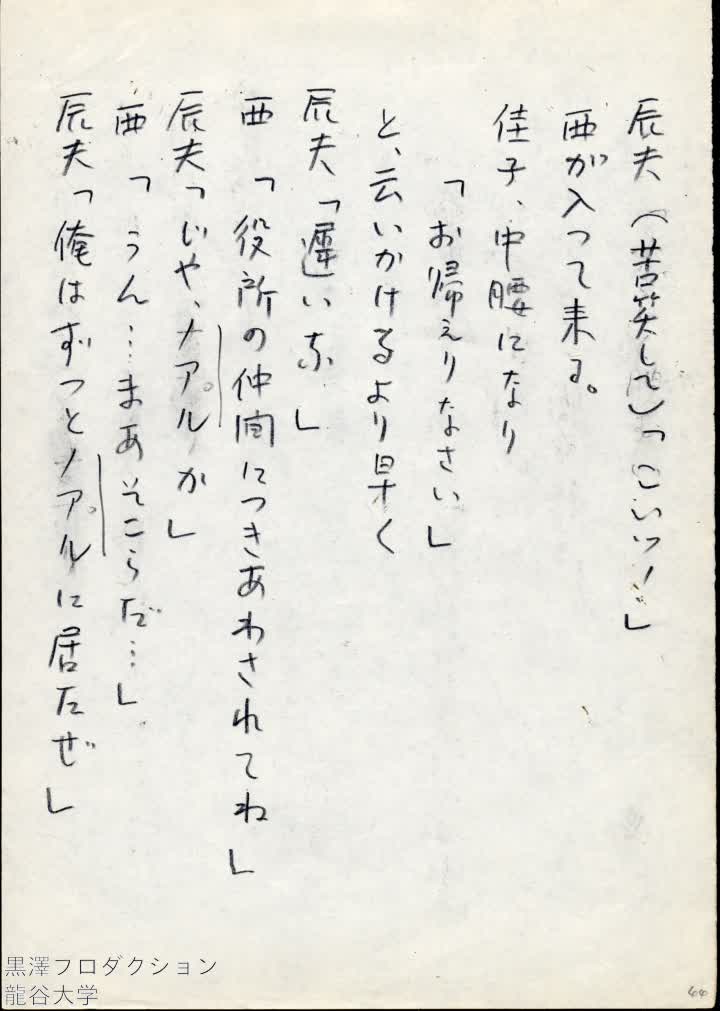 辰夫(苦笑して)「こいツ！」
西が入って来る。
佳子、中腰になり
「お帰えりなさい」
と、云いかけるより早く
辰夫「遅いな」
西「役所の仲间につきあわされてね」
辰夫「じや、ナアプルか」
西「うん…まあそこらだ…」
辰夫「俺はずつとナアプルに居たぜ」
黒澤フロダクション
龍谷大学